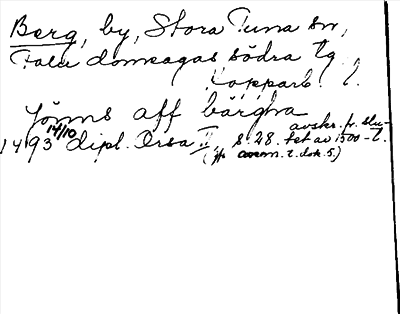 Berg, by, Stora Tuna sn,
Falu domsagas södra tg
Kopparb. l.
Jönns aff bärgha
avskr. fr. slu-
1493 14/10 dipl. Orsa II, s. 28. tet av 1500-t.
(jfr anm. t. dok. 5.)